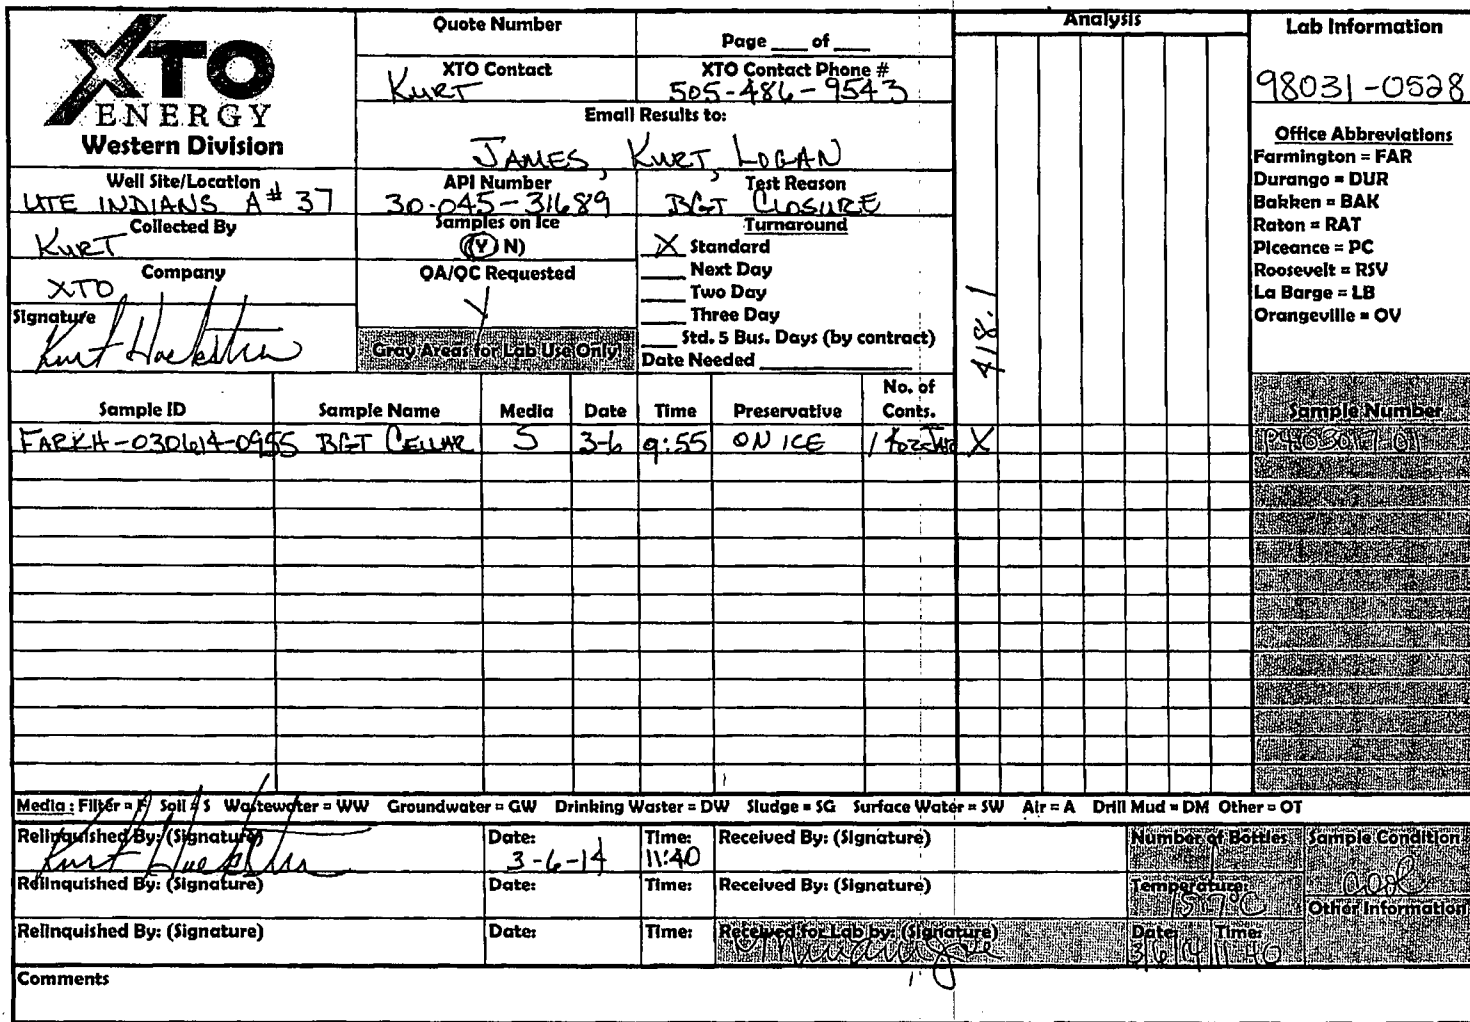 XTO
ENERGY
Western Division
Quote Number
Page ___ of ___
XTO Contact
KURT
XTO Contact Phone #
505-486-9543
Email Results to:
JAMES, KURT, LOGAN
Well Site/Location
UTE INDIANS A# 37
API Number
30-045-31689
Test Reason
BGT CLOSURE
Collected By
KURT
Samples on Ice
(Y) N)
Turnaround
X Standard
___ Next Day
___ Two Day
___ Three Day
___ Std. 5 Bus. Days (by contract)
Date Needed ___
Company
XTO
QA/QC Requested
Y
Signature
Kurt Hoekstra
Gray Areas for Lab Use Only!
Analysis
418.1
Lab Information
98031-0528
Office Abbreviations
Farmington = FAR
Durango = DUR
Bakken = BAK
Raton = RAT
Piceance = PC
Roosevelt = RSV
La Barge = LB
Orangeville = OV
Sample ID Sample Name Media Date Time Preservative No. of Conts. Sample Number
FARKH-030614-0955 BGT CELLAR S 3-6 9:55 ON ICE 1 4oz JAR X
Media : Filter = F Soil = S Wastewater = WW Groundwater = GW Drinking Waster = DW Sludge = SG Surface Water = SW Air = A Drill Mud = DM Other = OT
Relinquished By: (Signature) Date: Time: Received By: (Signature) Number of Bottles Sample Condition
Kurt Hoekstra 3-6-14 11:40 1 cool
Relinquished By: (Signature) Date: Time: Received By: (Signature) Temperature:
15.7°C
Other Information
Relinquished By: (Signature) Date: Time: Received for Lab by: (Signature) Date Time:
3/6/14 11:40
Comments